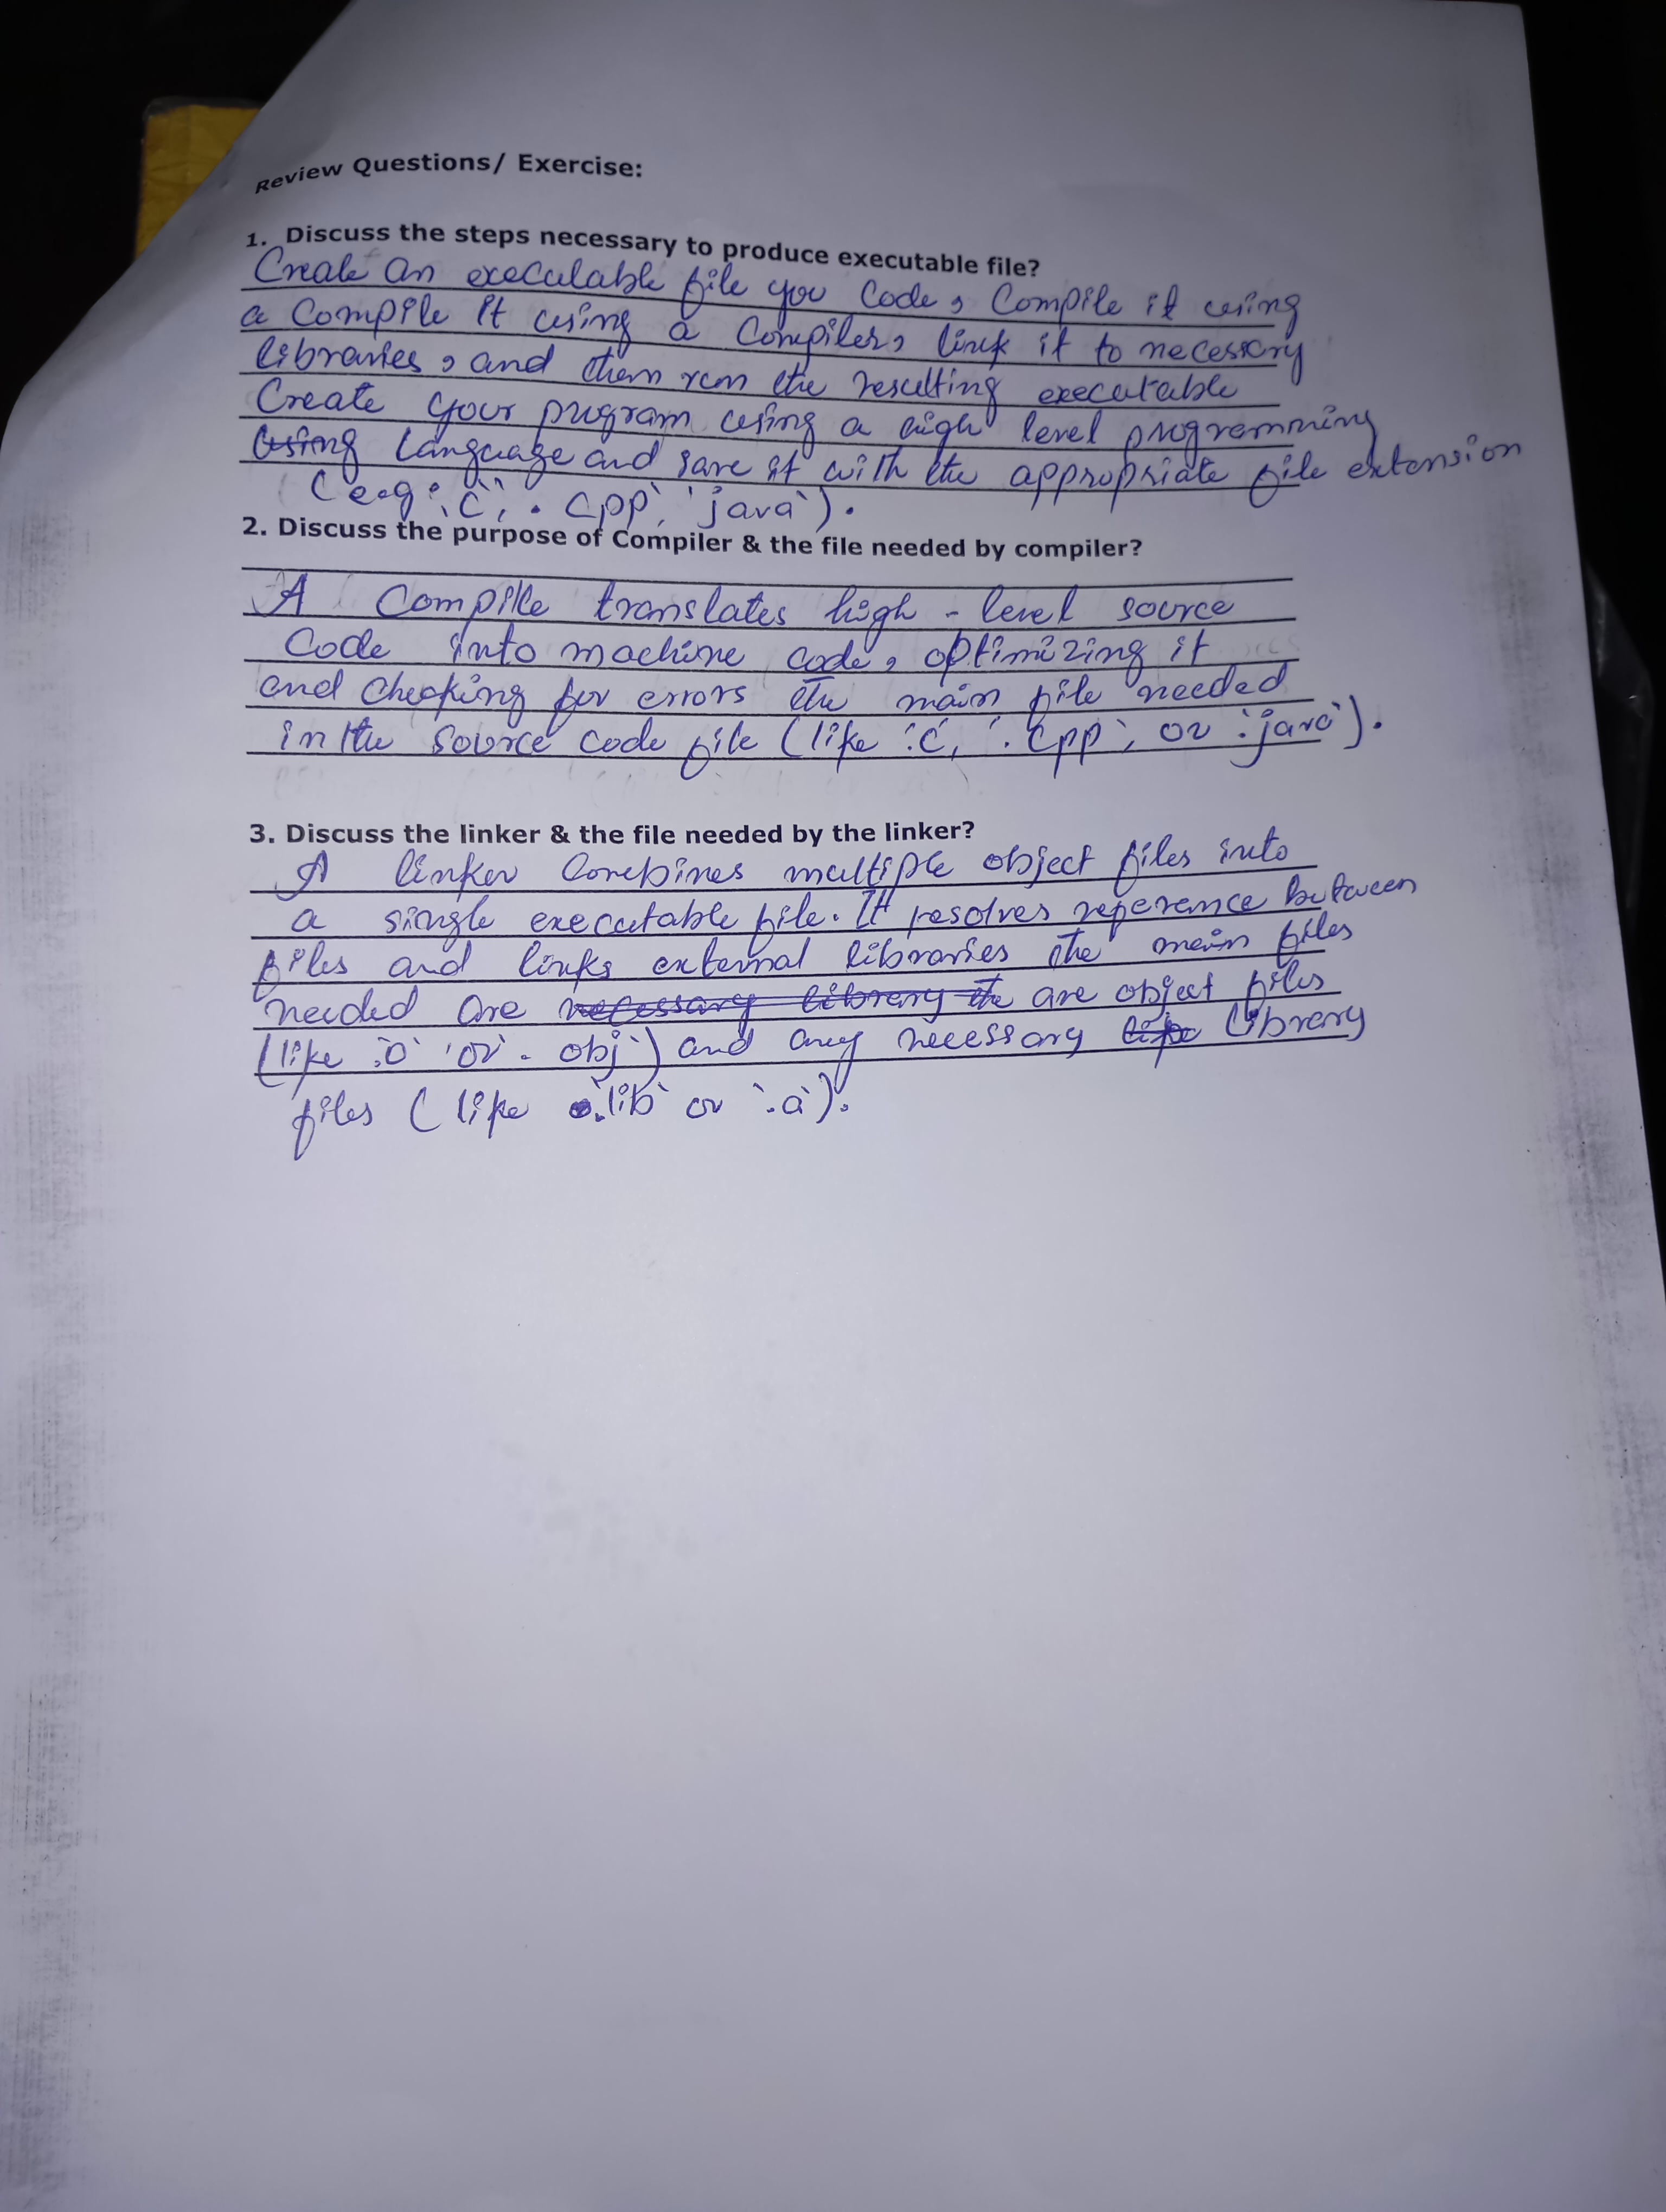 Review Questions/ Exercise:
1. Discuss the steps necessary to produce executable file?
Create an executable file you Code, Compile it using
a Compile it using a Compiler, link it to necessary
libraries, and then run the resulting executable
Create your program using a high level programming
using Language and save it with the appropriate file extension
(e.g: 'c', . cpp', 'java').
2. Discuss the purpose of Compiler & the file needed by compiler?
A Compile translates high - level source
Code into machine code, optimizing it
and checking for errors the main file needed
in the source code file (like '.c', '. cpp', or '.java').
3. Discuss the linker & the file needed by the linker?
A linker Combines multiple object files into
a single executable file. It resolves reference between
files and links external libraries the main files
needed are necessary library the are object files
(like '.o' 'or'. obj') and any necessary library
files (like '.lib' or '.a').